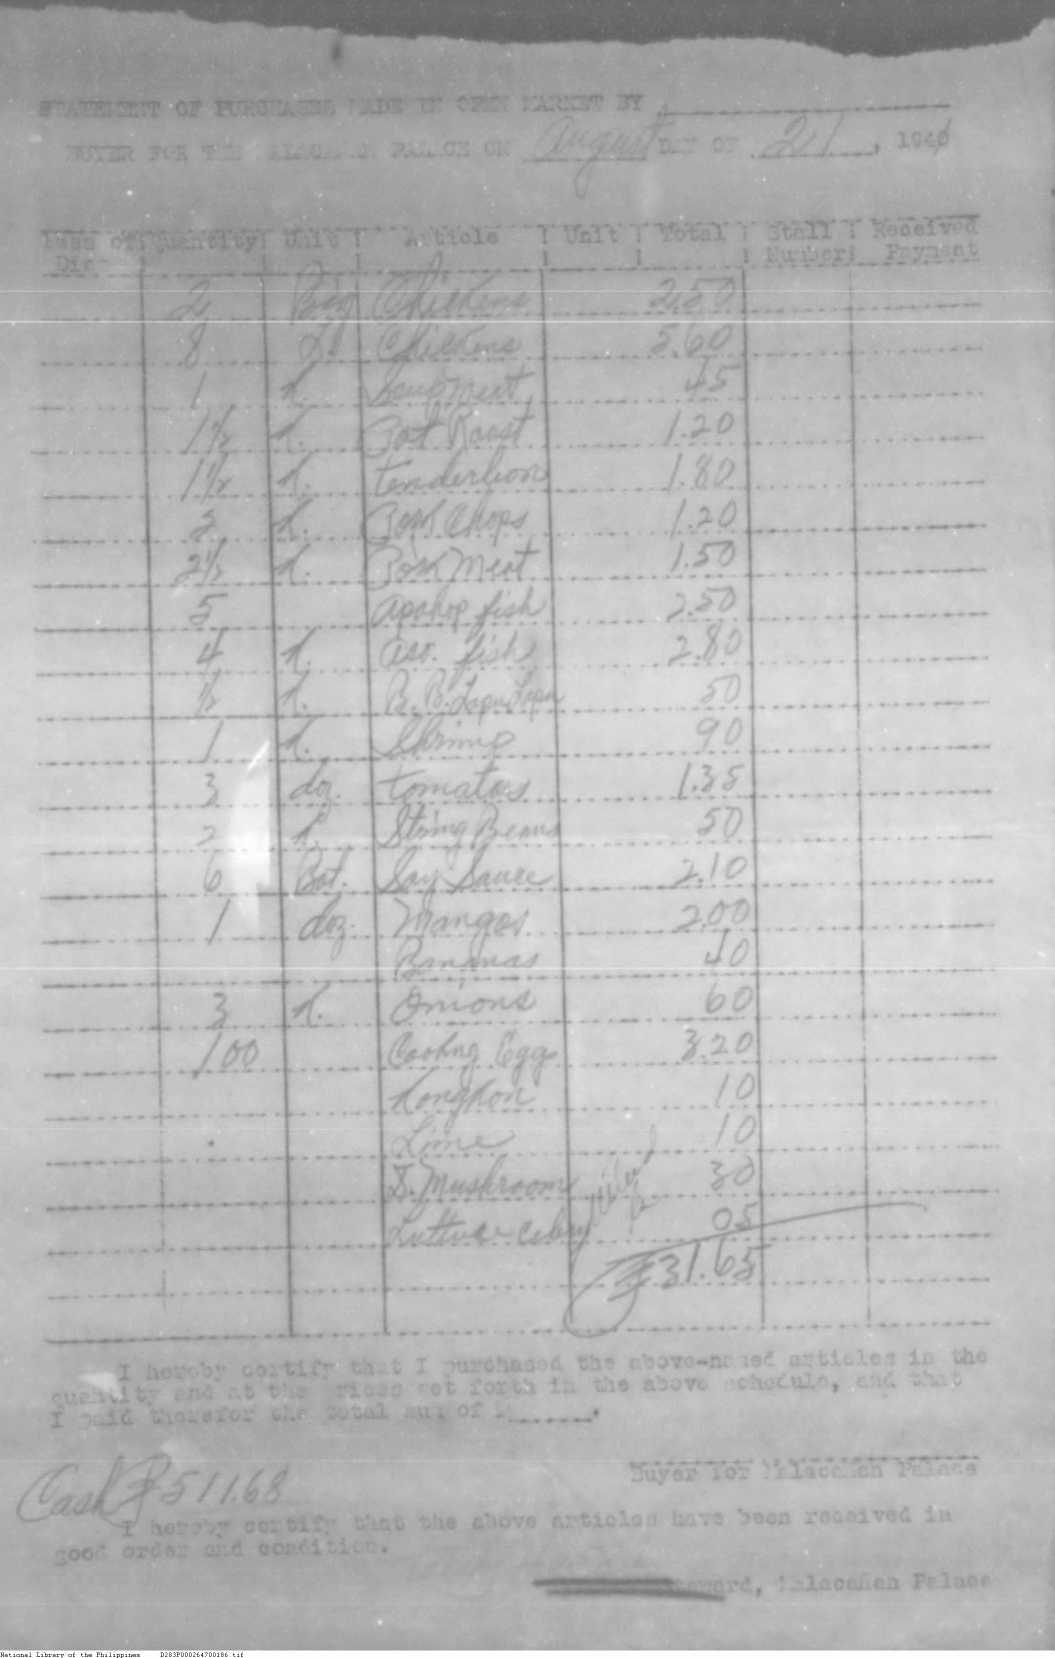 STATEMENT OF PURCHASES MADE IN OPEN MARKET BY
BUYER FOR THE MALACAÑAN PALACE ON August DAY OF 21, 194
Quantity Unit Article Unit Total Stall Number Received Payment
2 Big Chickens 2.50
8 L. Chickens 5.60
1 k. Soup Meat 45
1 1/2 k. Pot Roast 1.20
1 1/2 k. Tenderlion 1.80
2 k. Pork Chops 1.20
2 1/2 k. Pork Meat 1.50
5 Apahap fish 2.50
4 k. Aso. fish 2.80
1/2 k. B. B. Lapu Lapu 50
1 k. Shrimp 90
3 doz. tomatos 1.35
2 k. String Beans 50
6 Bot. Soy Sauce 2.10
1 doz. Mangos 2.00
Bananas 40
3 k. Onions 60
100 Cooking Egg 3.20
Kongkon 10
Lime 10
S. Mushroom 30
Luttuce celery 05
₱31.65
I hereby certify that I purchased the above-named articles in the
quantity and at the prices set forth in the above schedule, and that
I paid therefor the total sum of
Buyer for Malacañan Palace
Cash ₱511.68
I hereby certify that the above articles have been received in
good order and condition.
Steward, Malacañan Palace
National Library of the Philippines D283P000264700186.tif